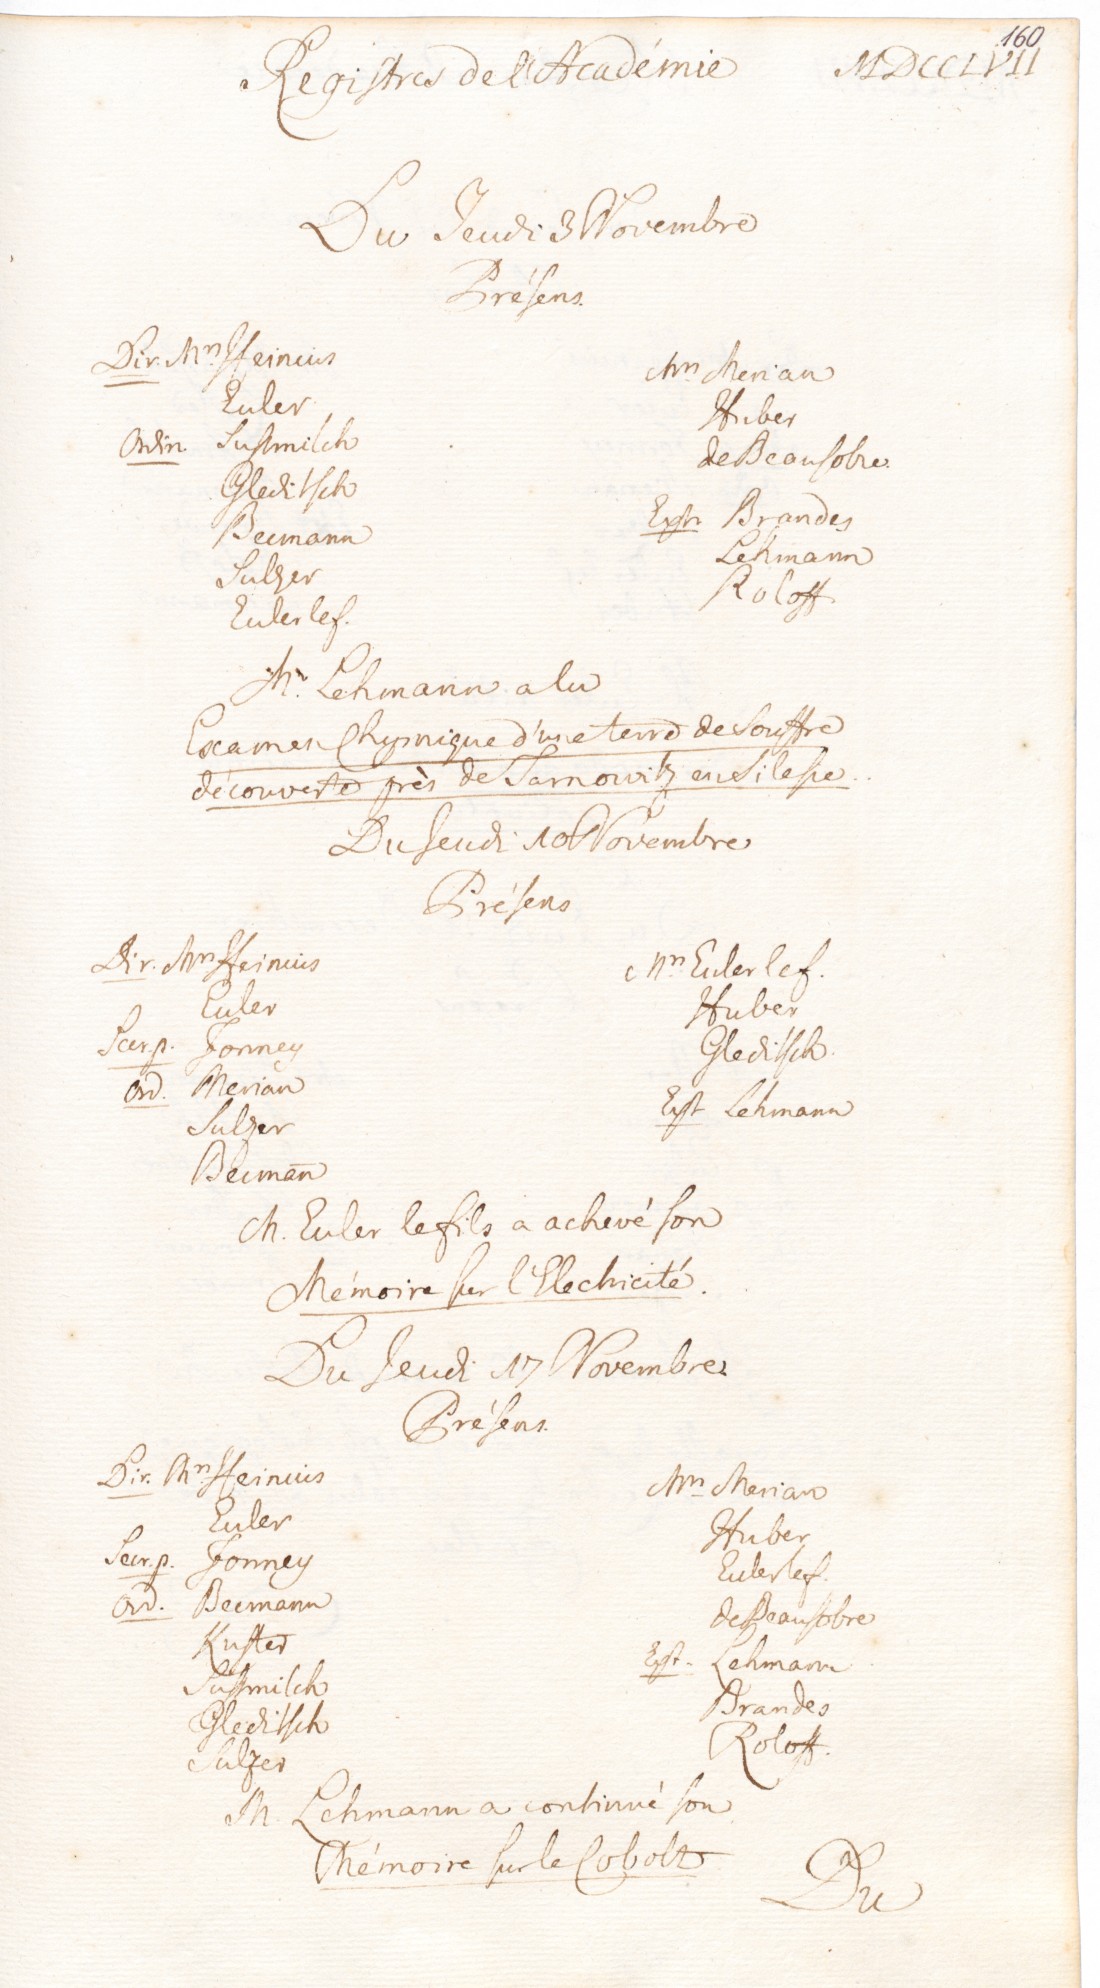 160
Registres de l'Académie MDCCLVII
Du Jeudi 3 Novembre
Présens.
Dir. Mrs Heinius
Euler
Ordin. Sußmilch
Gleditsch
Becmann
Sulzer
Euler le f.
Mrs Merian
Huber
de Beausobre.
Extr. Brandes
Lehmann
Roloff.
Mr. Lehmann a lu
Examen Chymique d'une terre de Souffre
découverte près de Tarnowitz en Silesie.
Du Jeudi 10 Novembre
Présens
Dir. Mrs Heinius
Euler
Secr. p. Formey
Ord. Merian
Sulzer
Becmañ
Mrs Euler le f.
Huber
Gleditsch.
Ext Lehmann
M. Euler le fils a achevé son
Mémoire sur l'Electricité.
Du Jeudi 17 Novembre
Présens.
Dir. Mrs Heinius
Euler
Secr. p. Formey
Ord. Becmann
Kuster
Sußmilch
Gleditsch
Sulzer
Mrs Merian
Huber
Euler le f.
de Beausobre
Ext. Lehmann
Brandes
Roloff.
M. Lehmann a continué son
Mémoire sur le Cobolt
Du